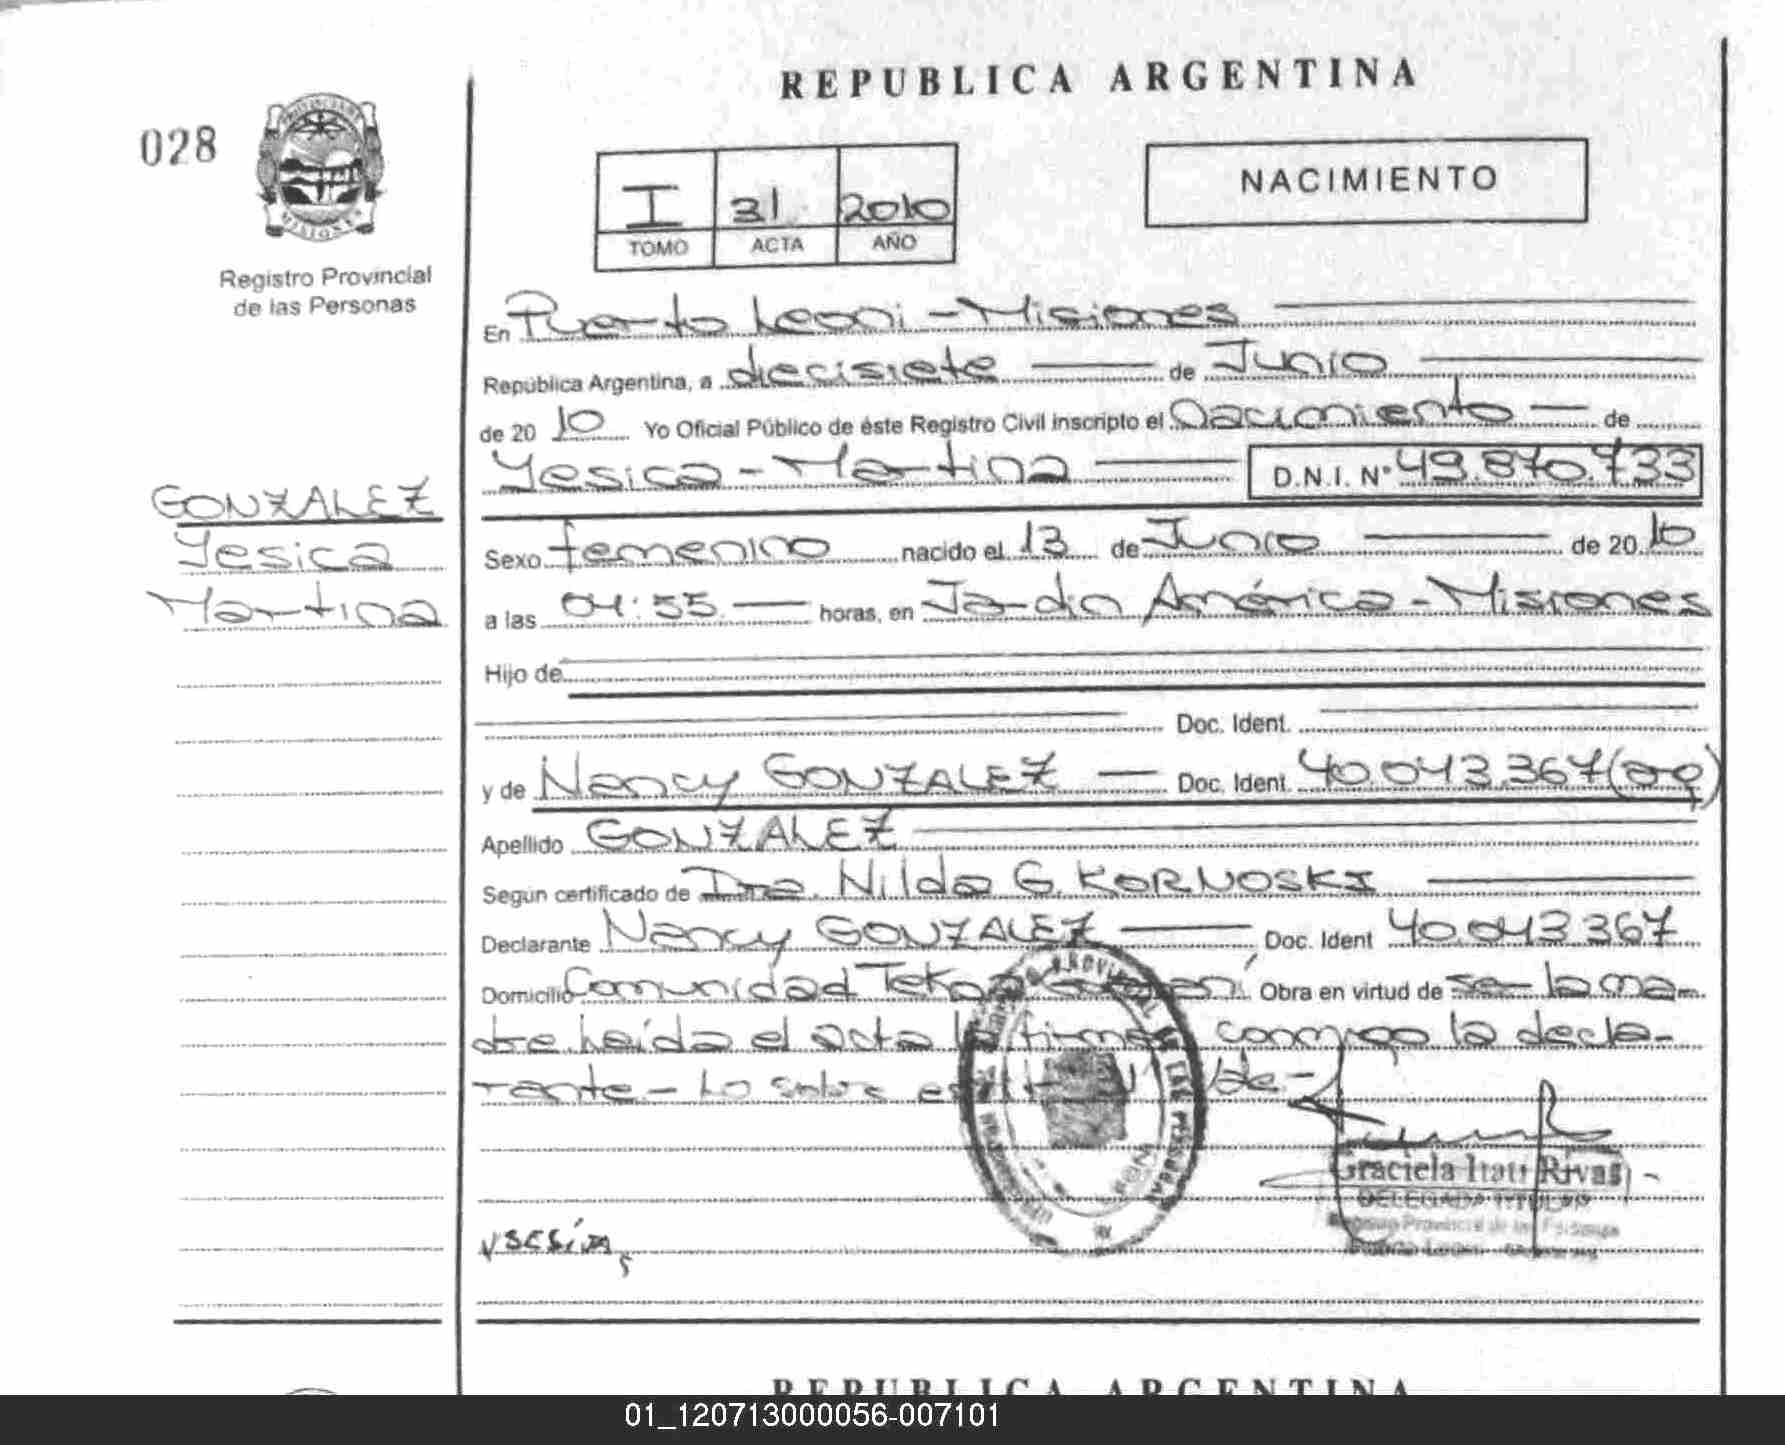 REPUBLICA ARGENTINA
028
NACIMIENTO
I 31 2010
TOMO ACTA AÑO
Registro Provincial
de las Personas
En Puerto Leoni - Misiones
República Argentina, a diecisiete de Junio
de 20 10 Yo Oficial Público de éste Registro Civil inscripto el Nacimiento de
Yesica - Martina D.N.I. Nº 49.870.733
GONZALEZ
Yesica
Martina
Sexo femenino nacido el 13 de Junio de 20 10
a las 04:55 horas, en Jardín América - Misiones
Hijo de
Doc. Ident.
y de Nancy GONZALEZ Doc. Ident. 40.043.367 (ag)
Apellido GONZALEZ
Según certificado de Dra. Nilda G. KORNOSKI
Declarante Nancy GONZALEZ Doc. Ident 40.043367
Domicilio Comunidad Tekoa Guaraní Obra en virtud de ser la ma-
dre. Leída el acta la firma conmigo la decla-
rante - Lo sobre
Graciela Itatí Rivas
DELEGADA TITULAR
Registro Provincial de las Personas
Puerto Leoni
REPUBLICA ARGENTINA
01_120713000056-007101